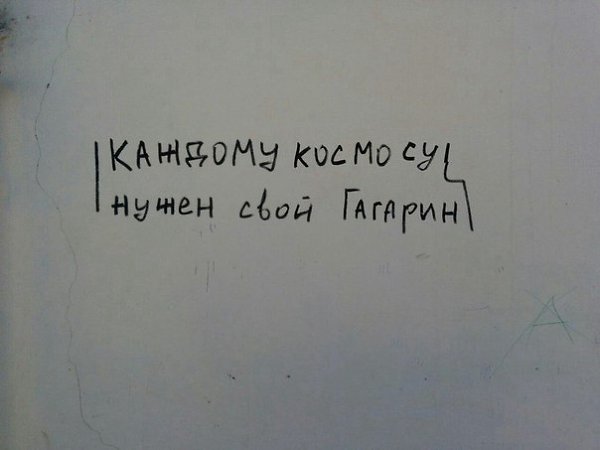 Каждому космосу
нужен свой Гагарин